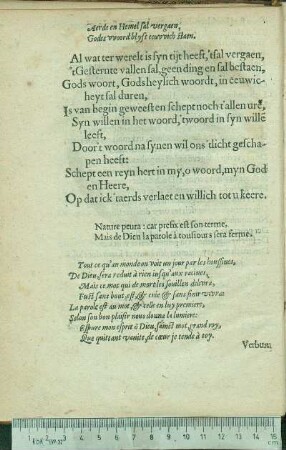 Aerde en Hemel sal vergaen,
Gods vvoord blijft eewvvich staen.
Al wat ter werelt is syn tijt heeft, 'tsal vergaen,
'tGesternte vallen sal, geen ding en sal bestaen,
Gods woort, Gods heylich woordt, in eeuwic-
heyt sal duren,
Is van begin geweest en schept noch t'allen urē,
Syn willen in het woord, 'twoord in syn wille
leest,
Door't woord na synen wil ons dicht gescha-
pen heest:
Schept een reyn hert in my, o woord, myn God
en Heere,
Op dat ick 'taerds verlaet en willich tot u keere.
Nature peura: car prefix est son terme.
Mais de Dieu la parole à tousiours sera ferme.
Tout ce qu'au monde on voit un jour par les
De Dieu, sera reduit à rien jusqu'aux racines,
Mais ce mot qui de
Fust sans bout, est & crée & sans finir
La parole est au mot, & celle en luy premiere,
Selon son bon plaisir nous donna la lumiere:
Espure mon esprit ô Dieu, sainct mot, grand roy,
Que quittant vanité, de cœur je tende à toy.
Verbum